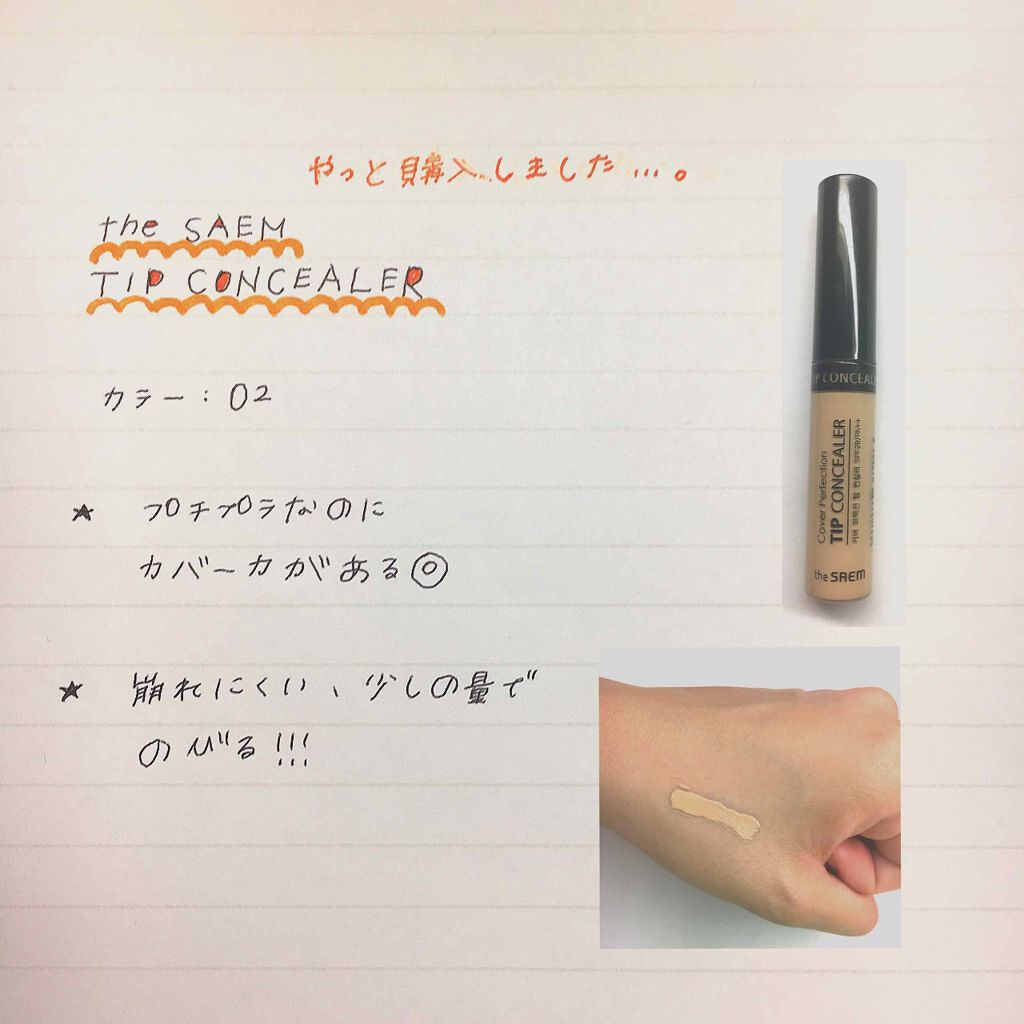 やっと購入しました…。
the SAEM
TIP CONCEALER
カラー：02
★ プチプラなのに
カバー力がある◎
★ 崩れにくい、少しの量で
のびる!!!
TIP CONCEAL
Cover Perfection
TIP CONCEALER
커버 퍼펙션 팁 컨실러 SPF28/PA++
the SAEM